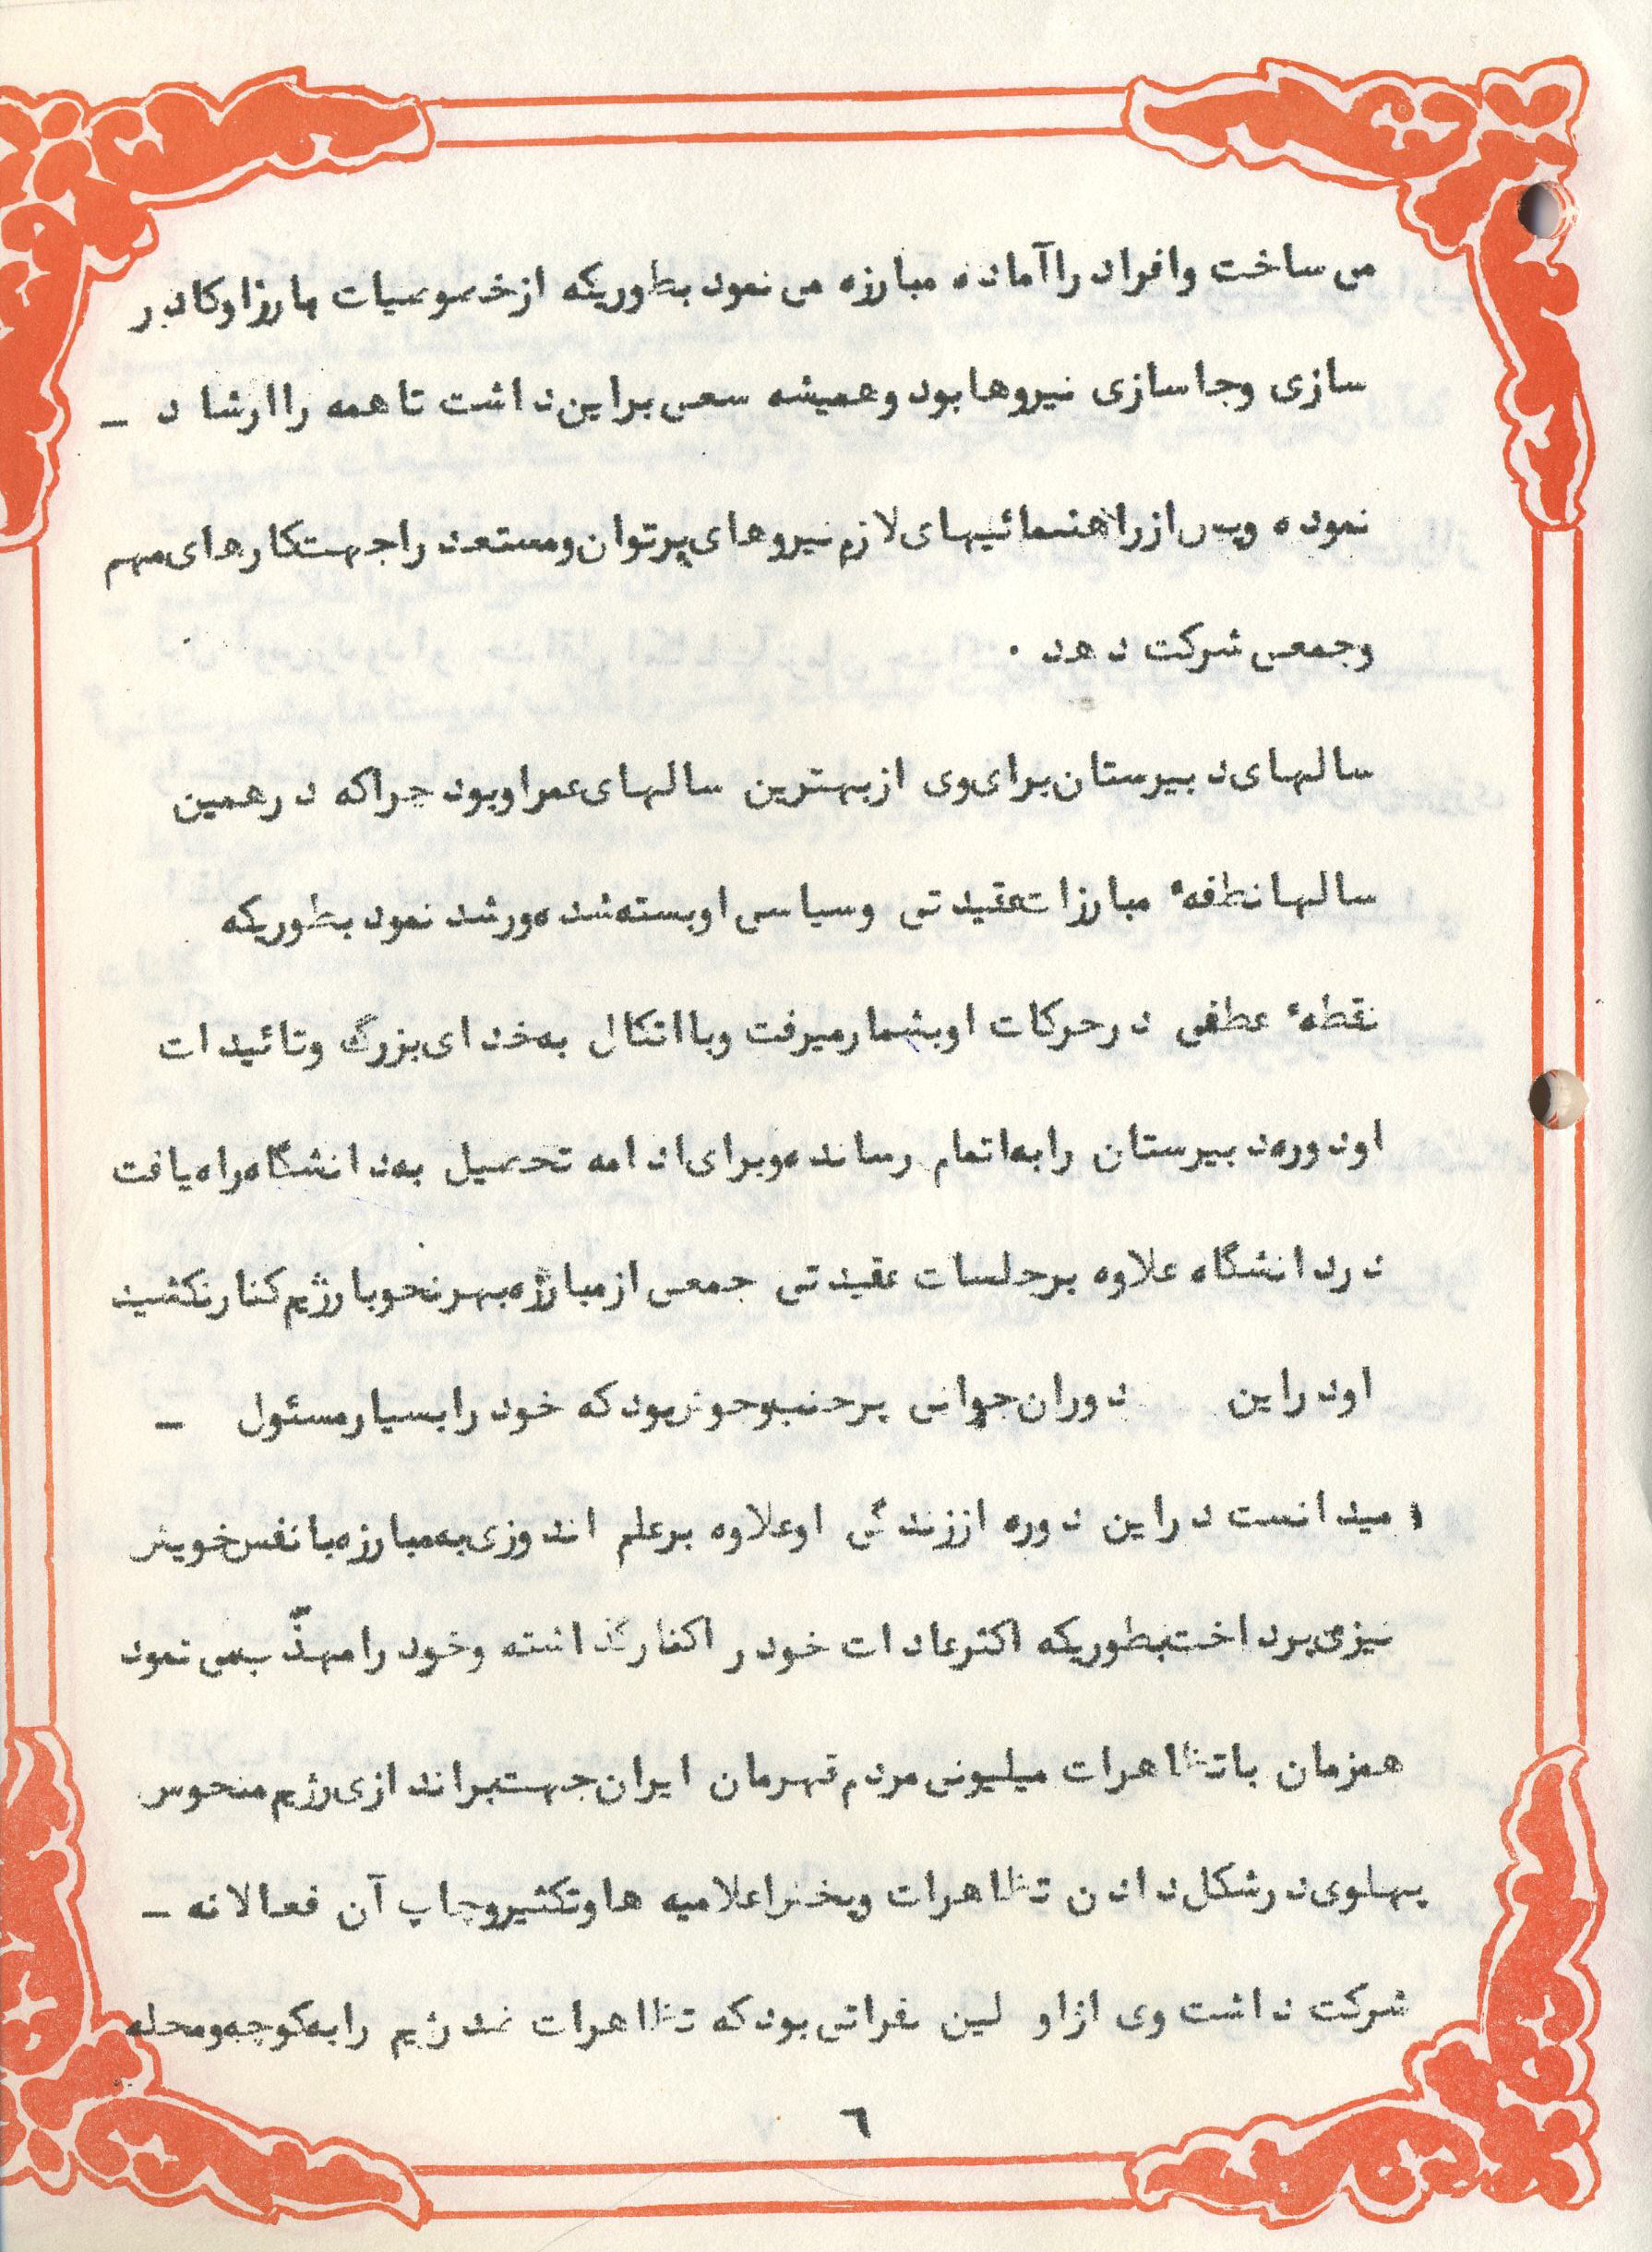 می ساخت وافراد راآماده مبارزه می نمود بطوریکه ازخصوصیات بارزاوکادر
سازی وجا سازی نیروها بود وهمیشه سعی براین داشت تا همه راارشاد _
نموده وپس ازراهنمائیهای لازم نیروهای پرتوان ومستعد راجهت کارهای مهم
وجمعی شرکت دهد .
سالهای دبیرستان برای وی ازبهترین سالهای عمراوبود چراکه درهمین
سالها نطفهٔ مبارزات عقیدتی وسیاسی اوبسته شده ورشد نمود بطوریکه
نقطهٔ عطفی درحرکات اوبشمارمیرفت وبااتکال به خدای بزرگ وتائیدات
اودوره دبیرستان رابه اتمام رسانده وبرای ادامه تحصیل به دانشگاه راه یافت
دردانشگاه علاوه برجلسات عقیدتی جمعی ازمبارزه بهرنحوبارژیم کنارنکشید
اودراین دوران جوانی پرجنب وجوش بود که خود رابسیارمسئول _
میدانست دراین دوره اززندگی اوعلاوه برعلم اندوزی به مبارزه بانفس خویش
نیزمی پرداخت بطوریکه اکثرعادات خود ر اکنارگذاشته وخود رامهذّب می نمود
همزمان باتظاهرات میلیونی مردم قهرمان ایران جهت براندازی رژیم منحوس
پهلوی درشکل دادن تظاهرات وپخش اعلامیه هاوتکثیروچاپ آن فعالانه _
شرکت داشت وی ازاو لین نفراتی بود که تظاهرات ضد رژیم رابه کوچه ومحله
٦